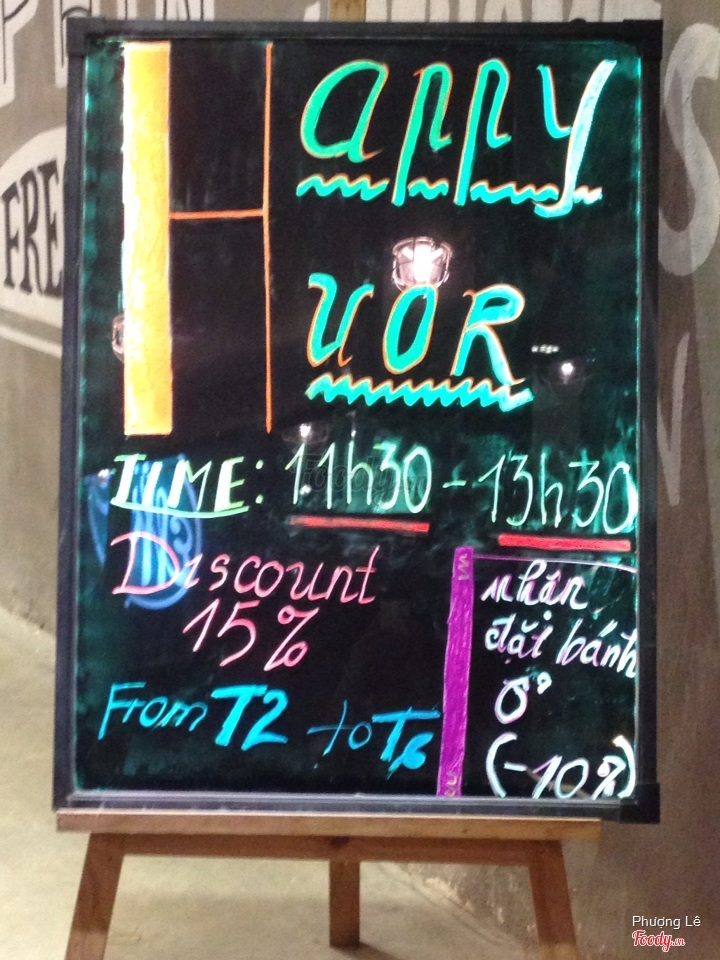 FRE
Happy
Huor
TIME: 11h30 - 13h30
Discount
15%
From T2 to T6
nhân
đặt bánh
(-10%)
Phượng Lê
Foody.vn